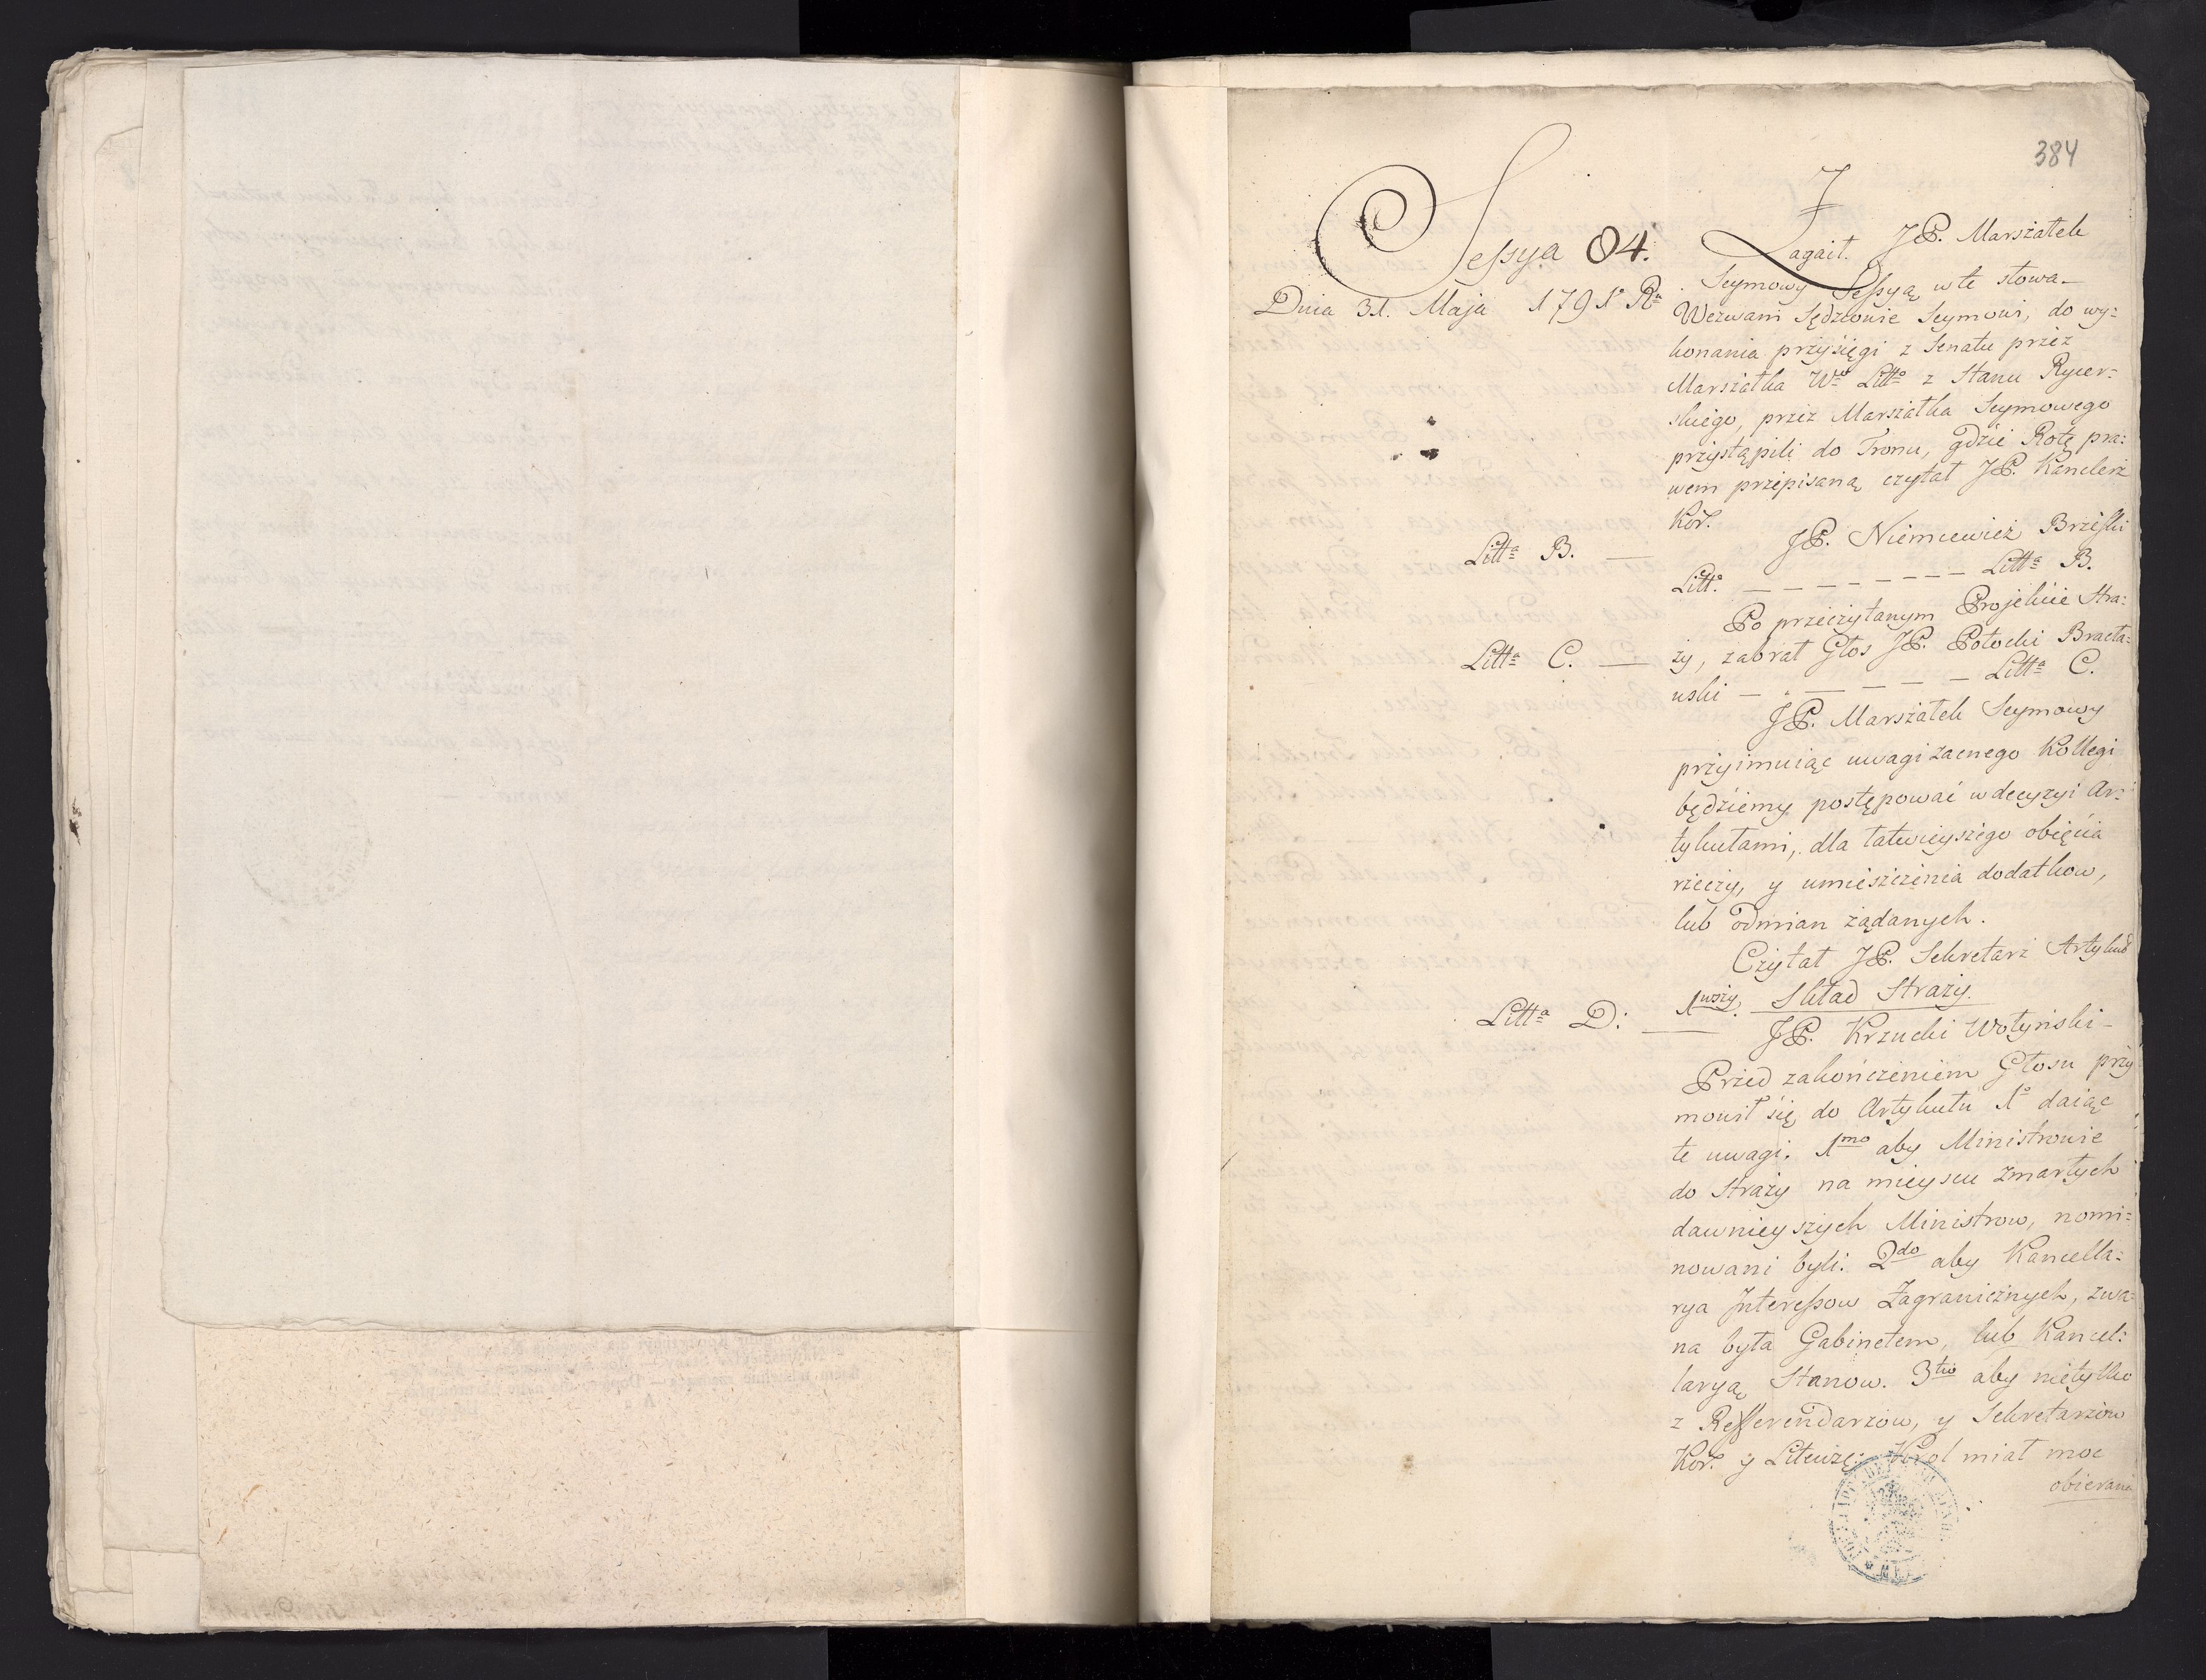 384
Sessya 84.
Dnia 31. Maja 1791º Rº
Zagaił JP. Marszałek
Seymowy Sessyą w te słowa_
Wezwani Sędziowie Seymowi, do wy=
konania przysięgi z Senatu przez
Marszałka Wº Littº z Stanu Rycer=
skiego, przez Marszałka Seymowego
przystąpili do Tronu, gdzie Rotę pra=
wem przepisaną czytał JP. Kanclerz
Kor.
Littª B. —
JP. Niemcewicz Brzeski
Litt. — — — — — — — Littª B.
Po przeczytanym Projekcie Stra=
Littª C. —
ży, zabrał Głos JP. Potocki Bracła=
wski — — — — — — Littª C.
JP. Marszałek Seymowy
przyimuiąc uwagi zacnego Kollegi
będziemy postępować w decyzyi Ar=
tykułami, dla łatwieyszego obięcia
rzeczy, y umieszczenia dodatkow,
lub odmian żądanych.
Czytał JP. Sekretarz Artykuł
1wszy. Skład Straży.
Littª D: —
JP. Krzucki Wołyński _
Przed zakończeniem Głosu przy
mowił się do Artykułu 1º daiąc
te uwagi. 1mo aby Ministrowie
do Straży na mieyscu zmarłych
dawnieyszych Ministrow, nomi=
nowani byli. 2do aby Kancella=
rya Interessow Zagranicznych, zwa=
na była Gabinetem, lub Kancel=
laryą Stanow. 3tio aby nietylko
z Refferendarzow, y Sekretarzow
Kor. y Litewsę: Krol miał moc
obierania